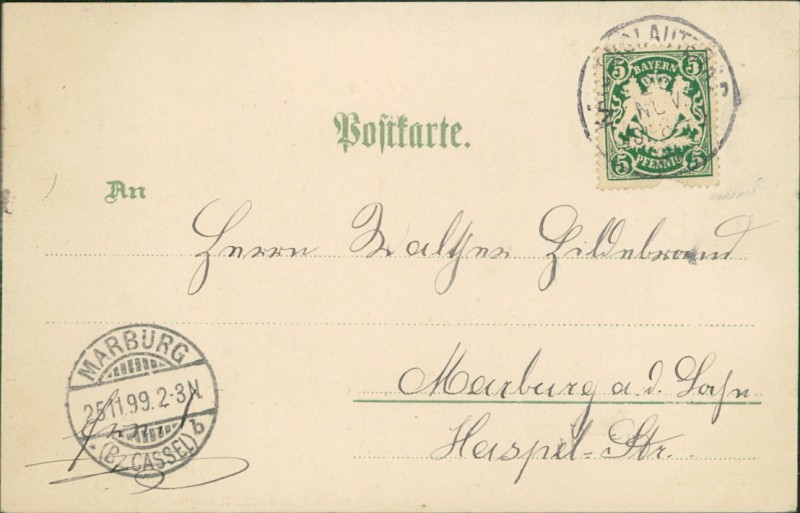 BAYERN
5 5
5 5
PFENNIG
Postkarte.
An
Herrn Walther Hildebrand
Marburg a. d. Lahn
Haspel-Str.
MARBURG
25.11.99. 2-3N
(Bz CASSEL) b